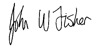 John W Fisher